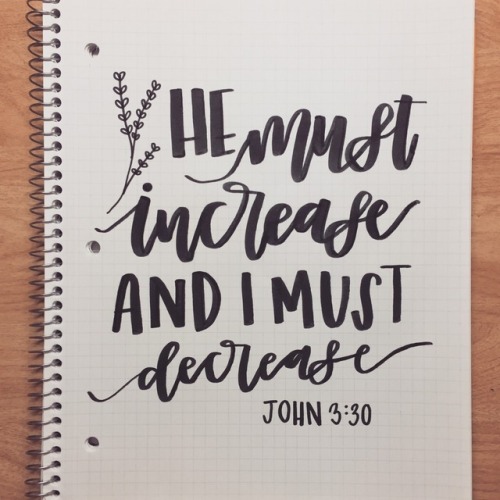 HE must
increase
AND I MUST
decrease
JOHN 3:30